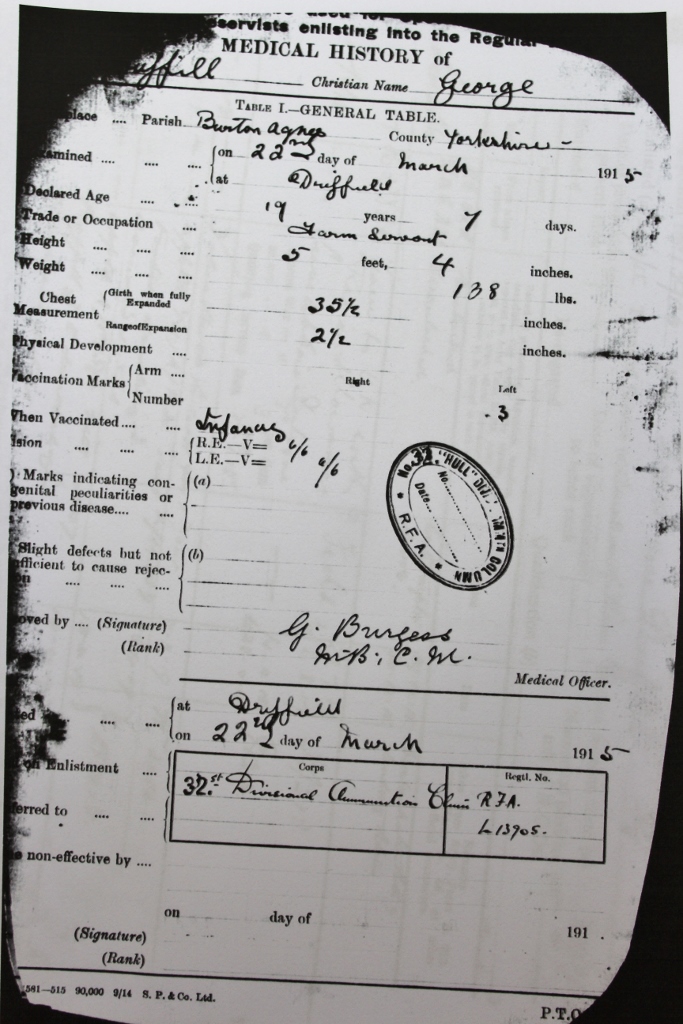 used for
servists enlisting into the Regular
MEDICAL HISTORY of
Christian Name George
TABLE I.—GENERAL TABLE.
place .... Parish Burton Agnes County Yorkshire -
amined .... .... .... on 22nd day of March 1915
at Driffield
Declared Age .... .... 19 years 7 days.
Trade or Occupation .... Farm Servant
Height .... .... .... 5 feet, 4 inches.
Weight .... .... .... 138 lbs.
Chest Measurement Girth when fully Expanded 35½ inches.
Range of Expansion 2½ inches.
Physical Development ....
Vaccination Marks Arm .... Right Left
Number 3
When Vaccinated .... .... Infancy
ision .... .... .... R.E.—V= 6/6
L.E.—V= 6/6
) Marks indicating con- (a)
genital peculiarities or
previous disease.... ....
Slight defects but not (b)
fficient to cause rejec-
on .... .... ....
No. 32. "HULL" COLUMN
R.F.A.
No.
Date
oved by .... (Signature) G. Burgess
(Rank) M.B., C.M.
Medical Officer.
ed .... .... at Driffield
on 22nd day of March 1915
on Enlistment .... Corps Regtl. No.
32.st Divisional Ammunition R.F.A.
erred to .... .... L13905.
e non-effective by ....
on day of 191 .
(Signature)
(Rank)
581—515 90,000 9/14 S. P. & Co. Ltd.
P.T.O